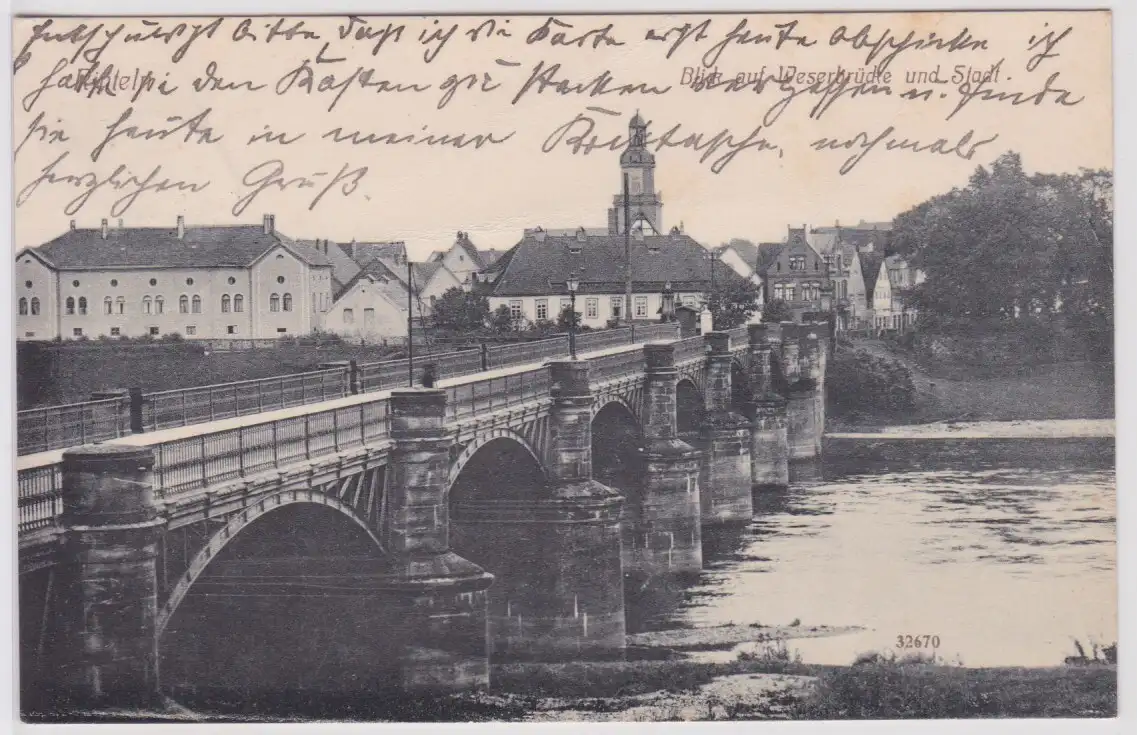 Entschuldigt bitte, daß ich die Karte erst heute abschicke ich
habe sie in den Kasten zu stecken vergessen u. finde
sie heute in meiner Rocktasche, nochmals
herzlichen Gruß.
Rinteln
Blick auf Weserbrücke und Stadt.
32670